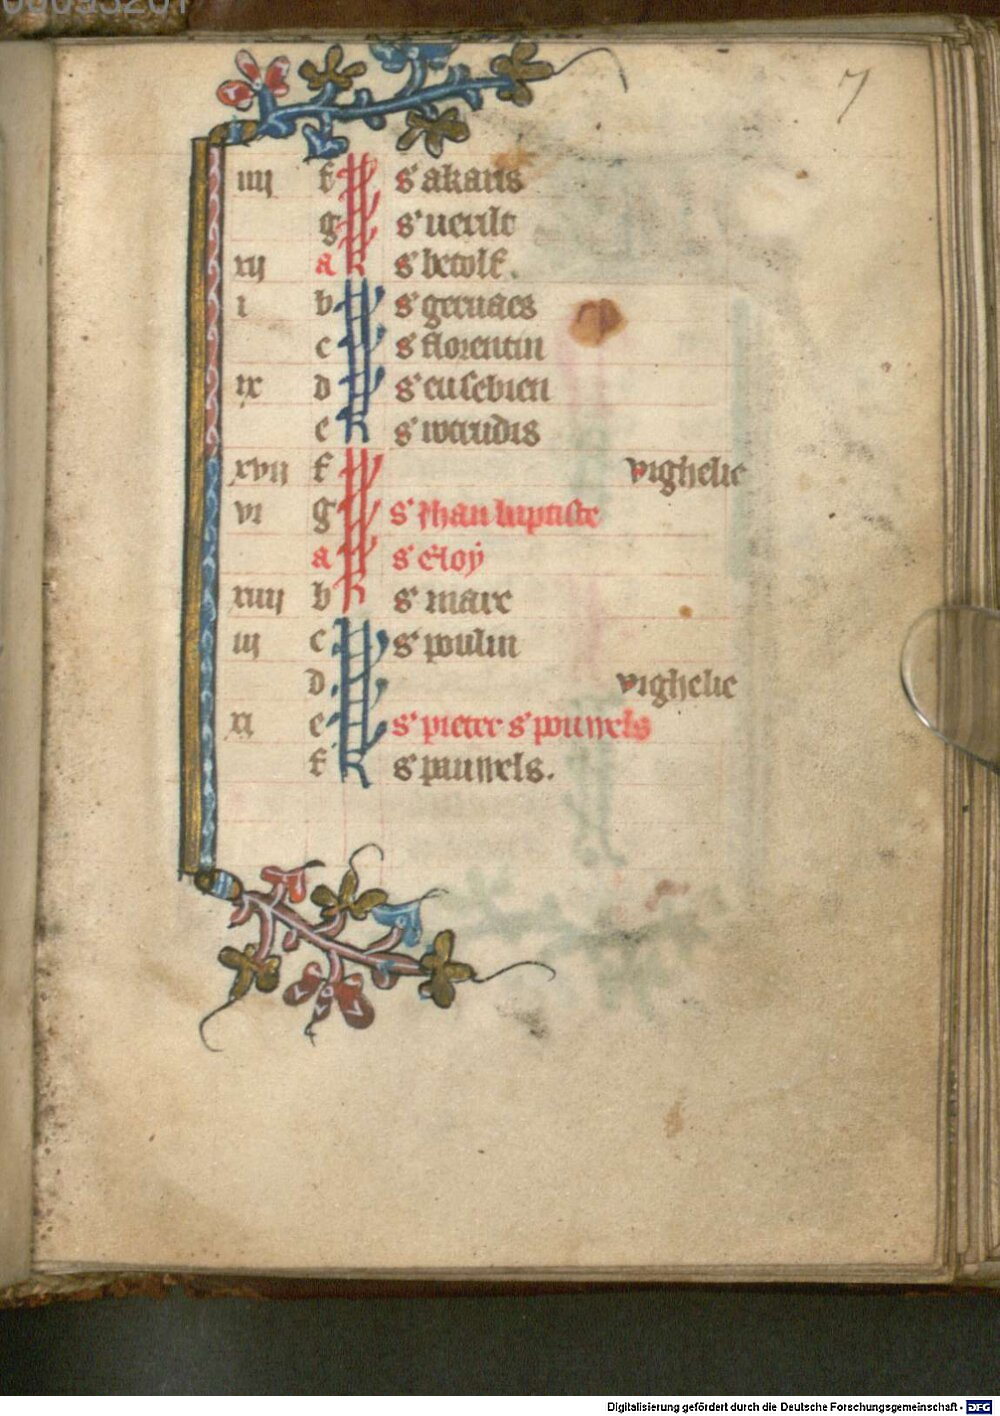 00095201
7
iiij f s' akaris
g s' uerilt
xij a s' betolf.
i b s' geruaes
c s' florentin
ix d s' eusebien
e s' waudis
xvij f vighelie
vi g s' Jhan baptiste
a s' Eloÿ
xiiij b s' marc
iij c s' poulin
d vighelie
xi e s' pieter s' pouwels
f s' pauwels.
Digitalisierung gefördert durch die Deutsche Forschungsgemeinschaft - DFG